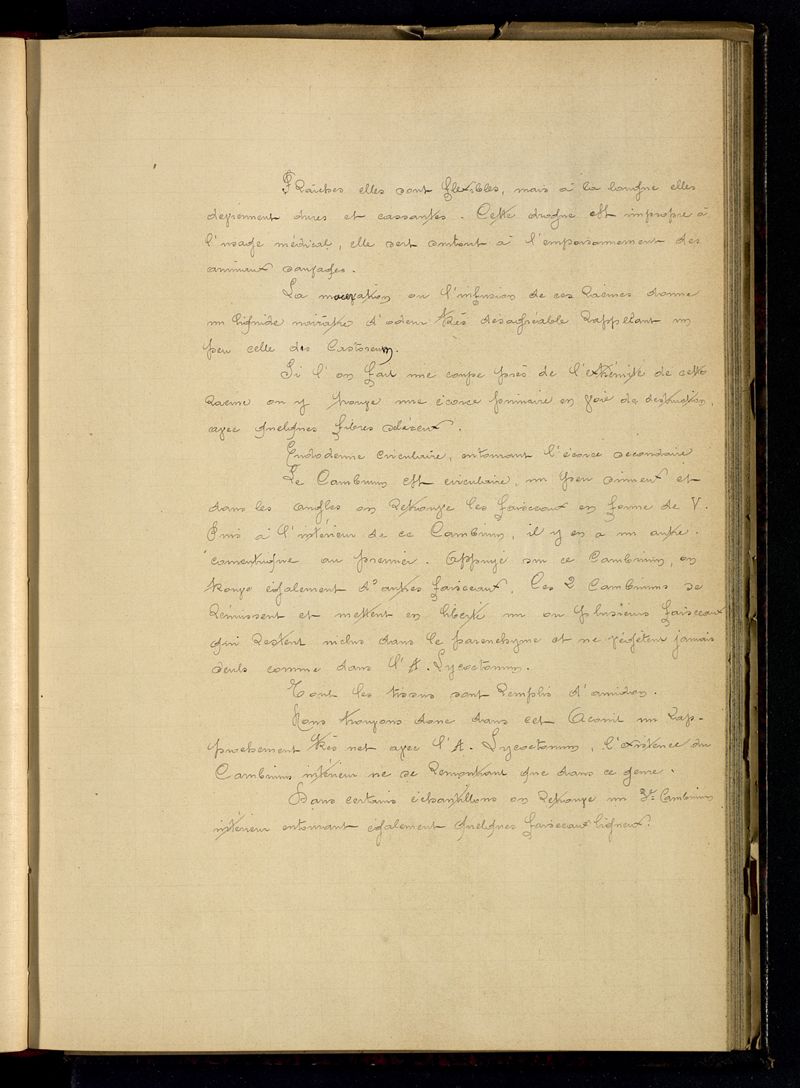 Fraiches elles sont flexibles, mais à la longue elles
deviennent dures et cassantes. Cette drogue est impropre à
l'usage médical, elle sert surtout à l'empoisonnement des
animaux sauvages.
La macération ou l'infusion de ces racines donne
un liquide noirâtre d'odeur très désagréable rappelant un
peu celle des Castoreum.
Si l'on fait une coupe près de l'extrémité de cette
racine on y trouve une écorce primaire en voie de destruction,
avec quelques fibres scléreux.
Endoderme circulaire, entourant l'écorce secondaire
Le Cambium est circulaire, un peu sinueux et
dans les angles on retrouve les faisceaux en forme de V.
Puis à l'intérieur de ce Cambium, il y en a un autre.
concentrique au premier. Appuyé sur ce Cambium, on
trouve également d'autres faisceaux. Ces 2 Cambiums se
réunissent et mettent en liberté un ou plusieurs faisceaux
qui restent inclus dans le parenchyme et ne végètent jamais
seuls comme dans l'A. Lycoctonum.
Tout les tissus sont remplis d'amidon.
Nous trouvons donc dans cet Aconit un rap-
prochement très net avec l'A. Lycoctonum, l'existence du
Cambium intérieur ne se remontrant que dans ce genre.
Dans certains échantillons on retrouve un 3e Cambium
intérieur entourant également quelques faisceaux ligneux.